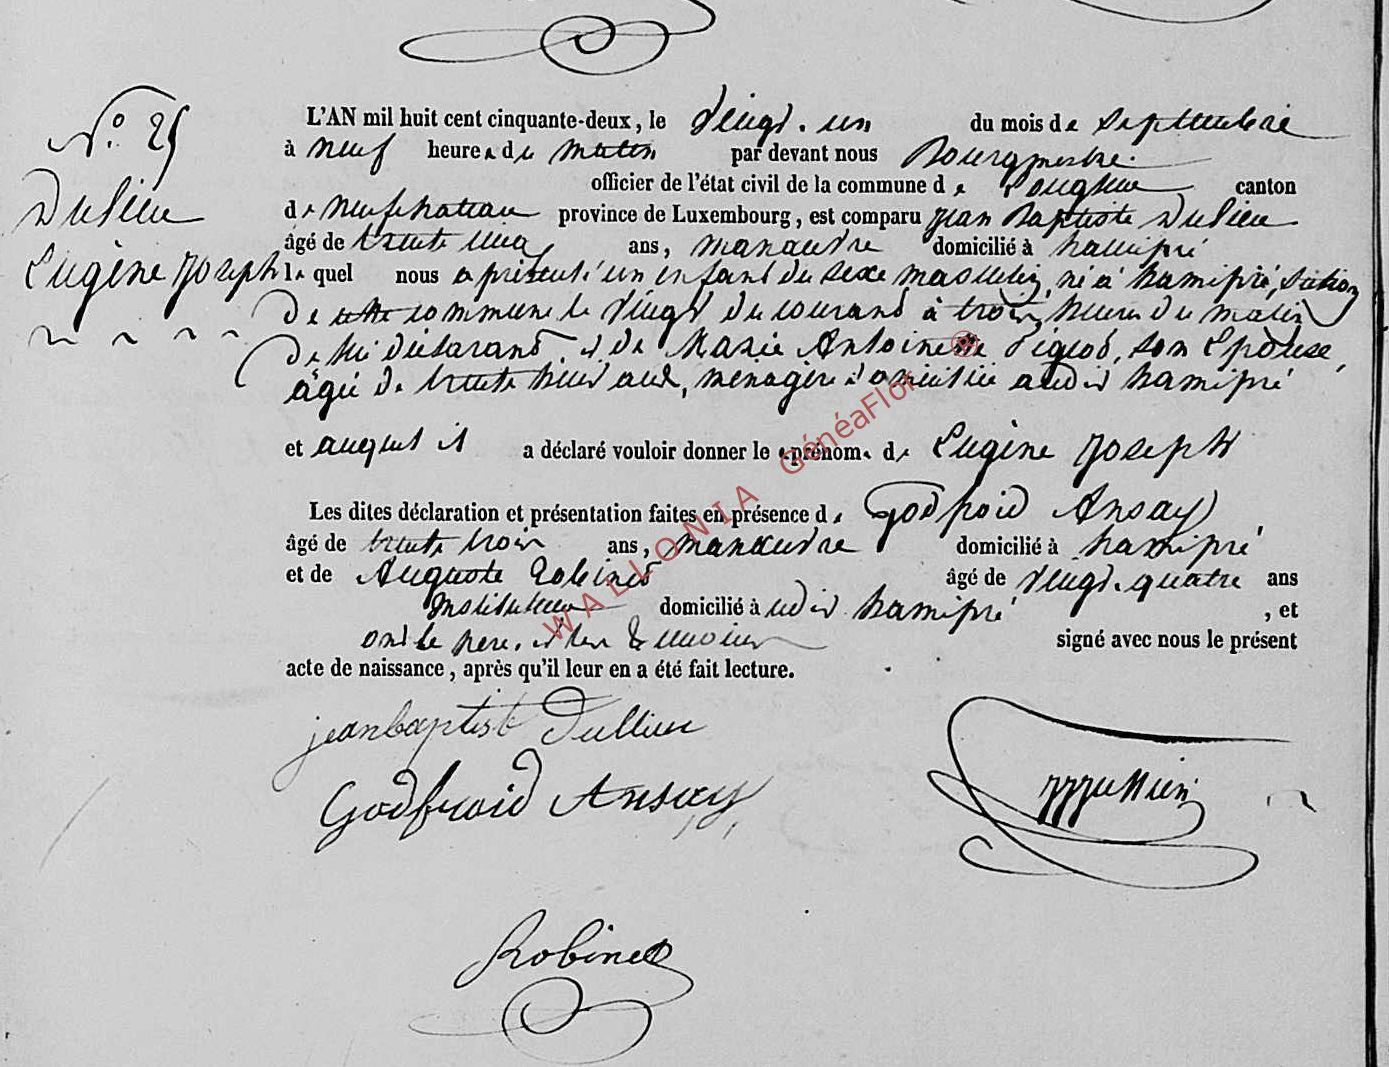 N.° 25
Dulieu
Eugène Joseph
L'AN mil huit cent cinquante-deux, le Vingt-un du mois de septembre
à neuf heures du matin par devant nous Bourgmestre
officier de l'état civil de la commune de Longlier canton
de neufchateau province de Luxembourg, est comparu jean Baptiste Dulieu
âgé de trente cinq ans, manœuvre domicilié à hamipré
le quel nous a présenté un enfant du sexe masculin, né à hamipré, section
de cette commune le Vingt du courant à trois heures du matin
de lui déclarant et de Marie Antoinette son Epouse,
âgée de trente neuf ans, ménagère domiciliée audit hamipré
et auquel il a déclaré vouloir donner les prénoms de Eugène Joseph
Les dites déclaration et présentation faites en présence de Godfroid Ansay
âgé de trente trois ans, manœuvre domicilié à hamipré
et de Auguste Robinet âgé de vingt-quatre ans
Instituteur domicilié à udit hamipré, et
ont le père, et les témoins signé avec nous le présent
acte de naissance, après qu'il leur en a été fait lecture.
jeanbaptist Dullieu
Godfroid Ansay
Robinet
WALLONIA GénéaFlor ®